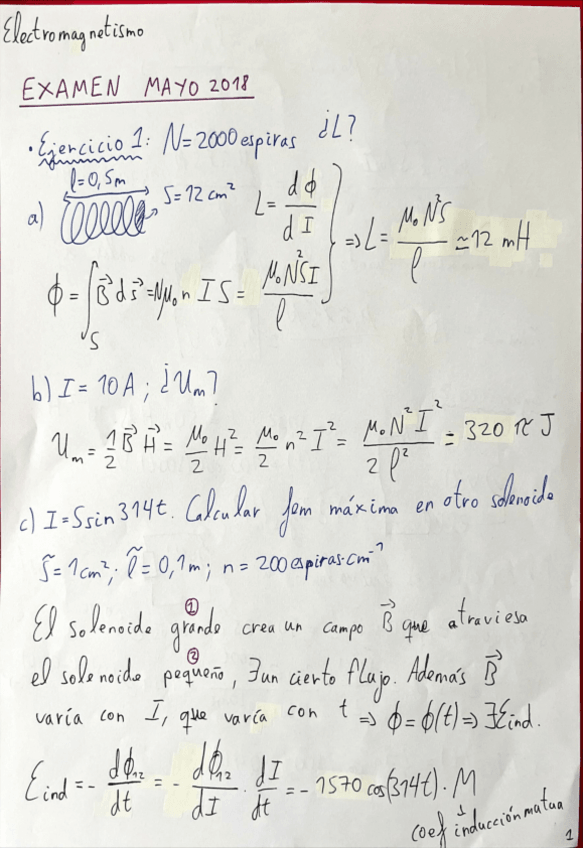 Electromagnetismo
EXAMEN MAYO 2018
• Ejercicio 1: N=2000 espiras ¿L?
l=0,5m
a) S=12 cm² L = dϕ/dI } ⇒ L = μ₀N²S/l ≃ 12 mH
ϕ = ∫_S B⃗ ds⃗ = Nμ₀ n I S = μ₀N²SI/l
b) I = 10A ; ¿Um?
Um = 1/2 B⃗ H⃗ = μ₀/2 H² = μ₀/2 n² I² = μ₀N²I²/2l² = 320 π J
c) I=5sin314t. Calcular fem máxima en otro solenoide
S̃=1cm²; l̃=0,1m; n=200espiras·cm⁻¹
①
El solenoide grande crea un campo B⃗ que atraviesa
②
el solenoide pequeño, ∃ un cierto flujo. Además B⃗
varía con I, que varía con t ⇒ ϕ=ϕ(t) ⇒ ∃Ɛind.
Ɛind = - dϕ₁₂/dt = - dϕ₁₂/dI · dI/dt = - 1570 cos(314t) · M
↓
coef inducción mutua
1